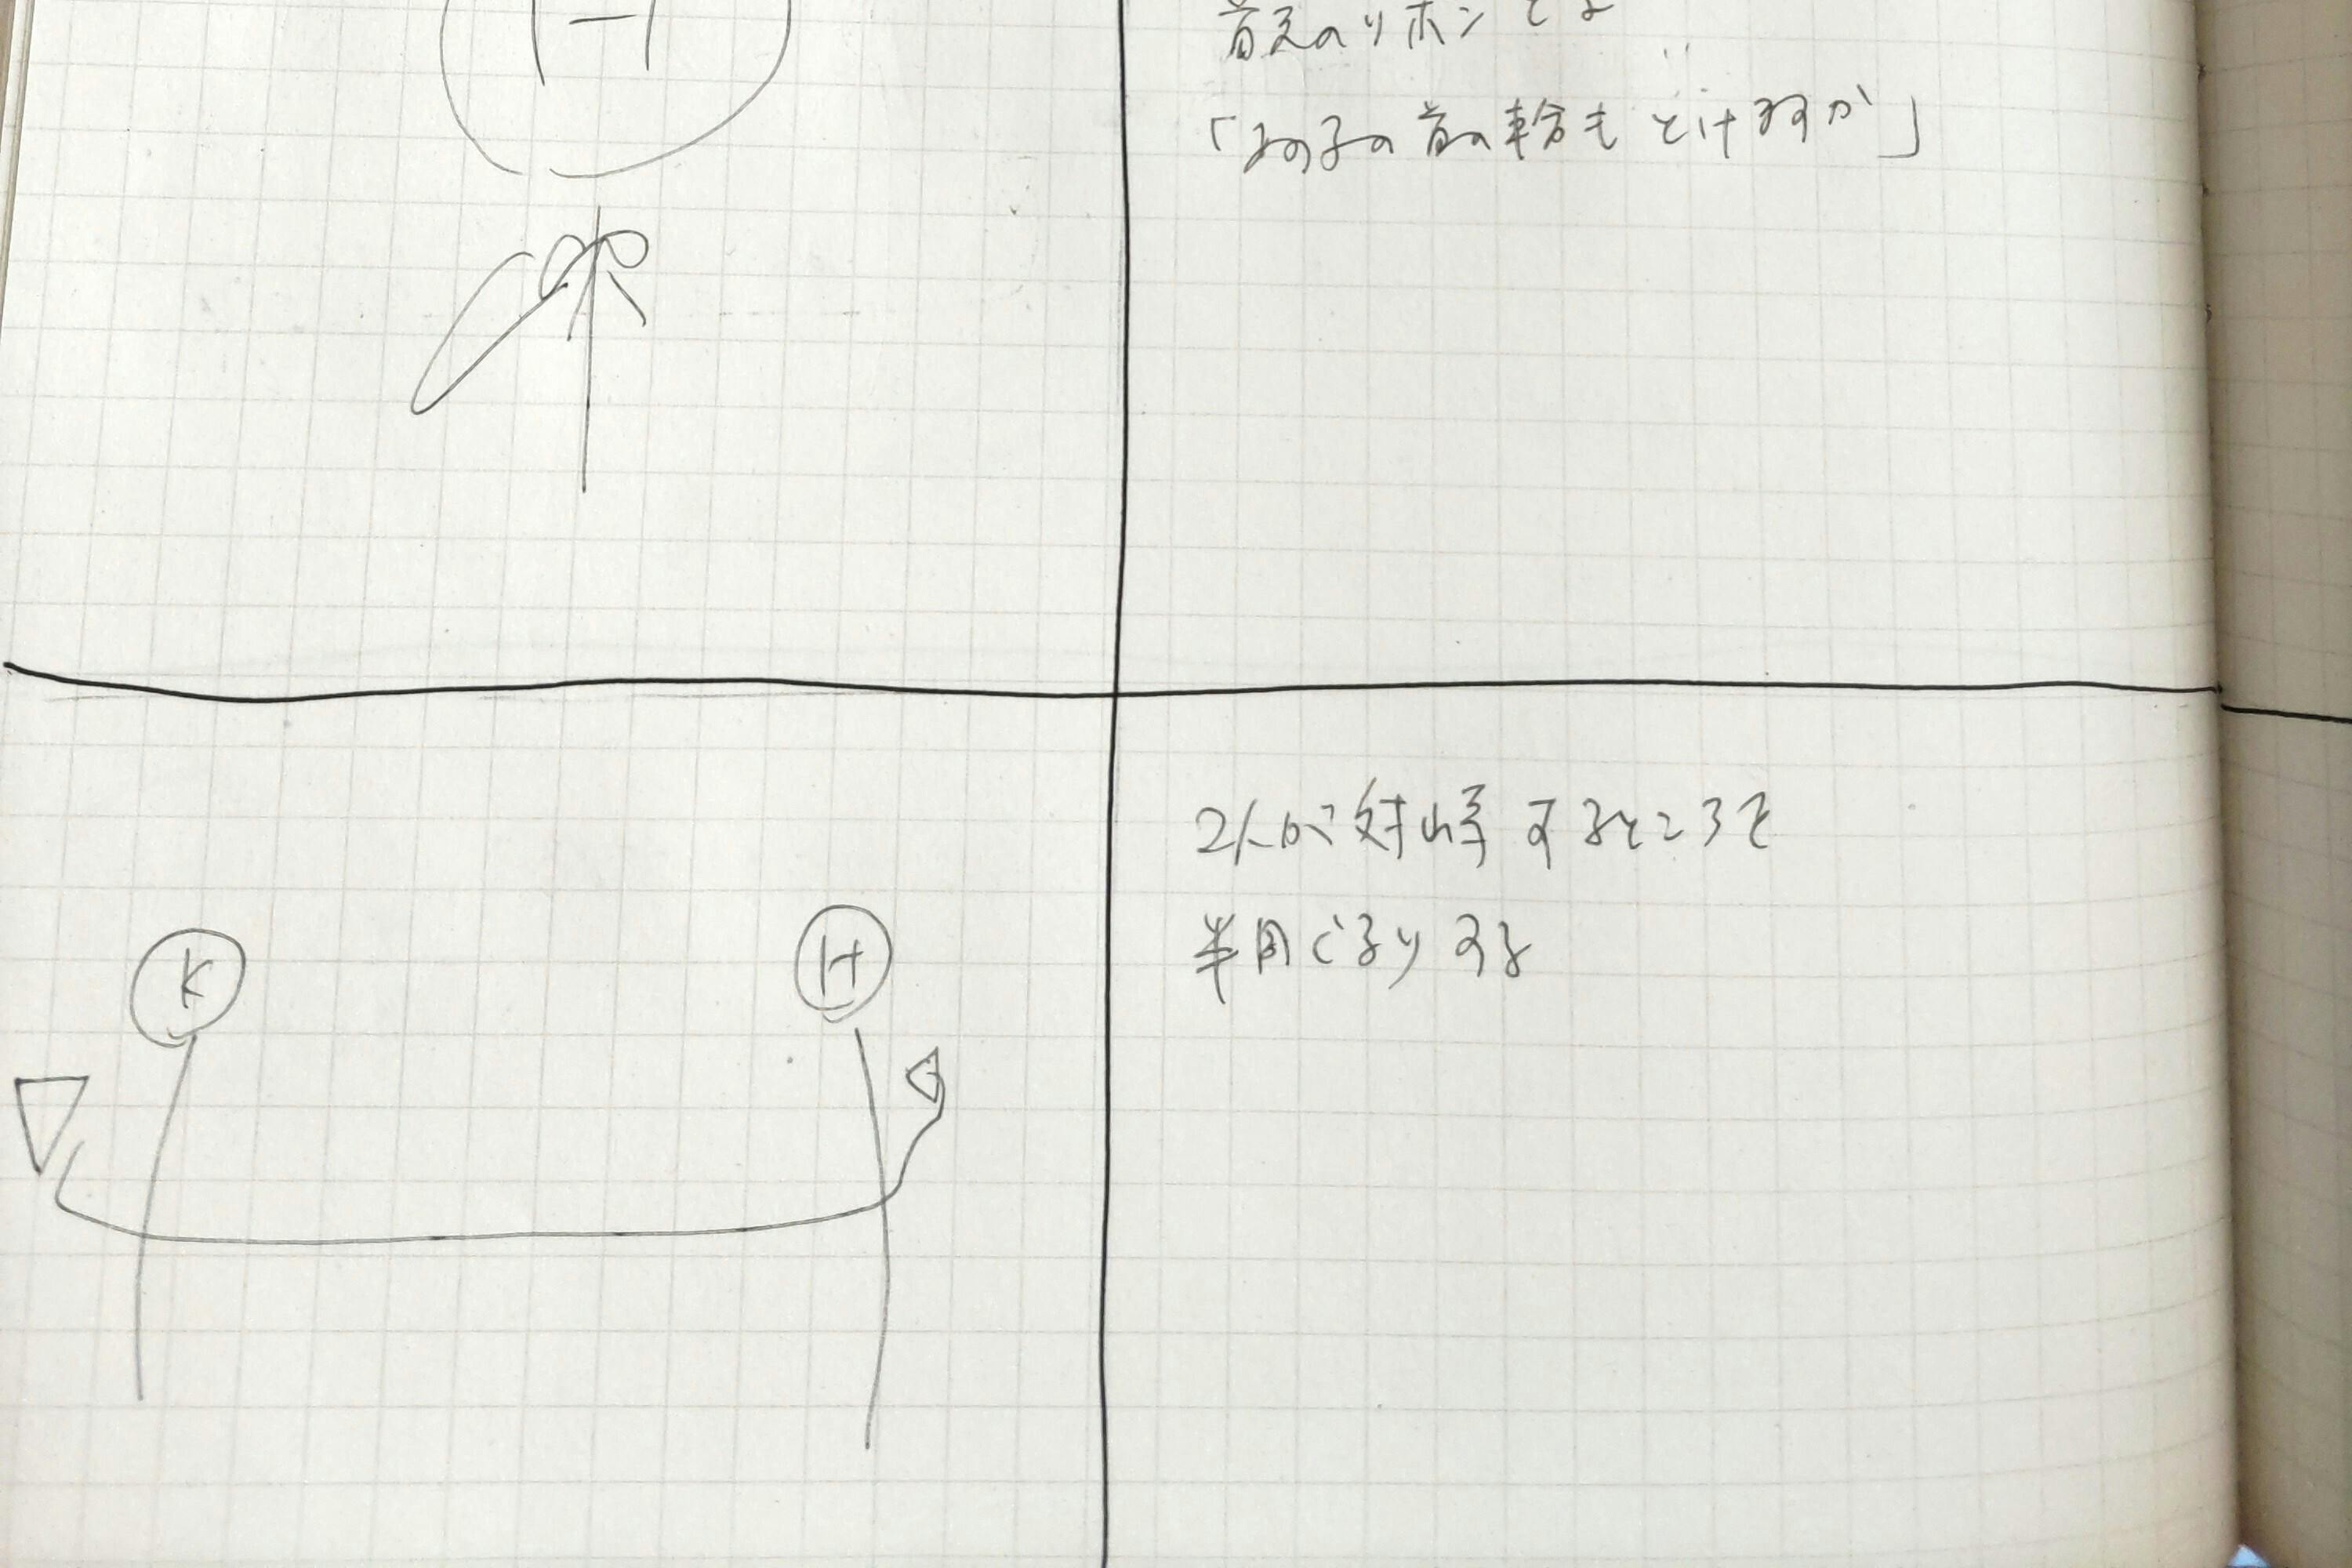 H
首元のリボンとる
「あの子の首輪も とけますか」
2人が対峙するところを
半円ぐるりする
K
H